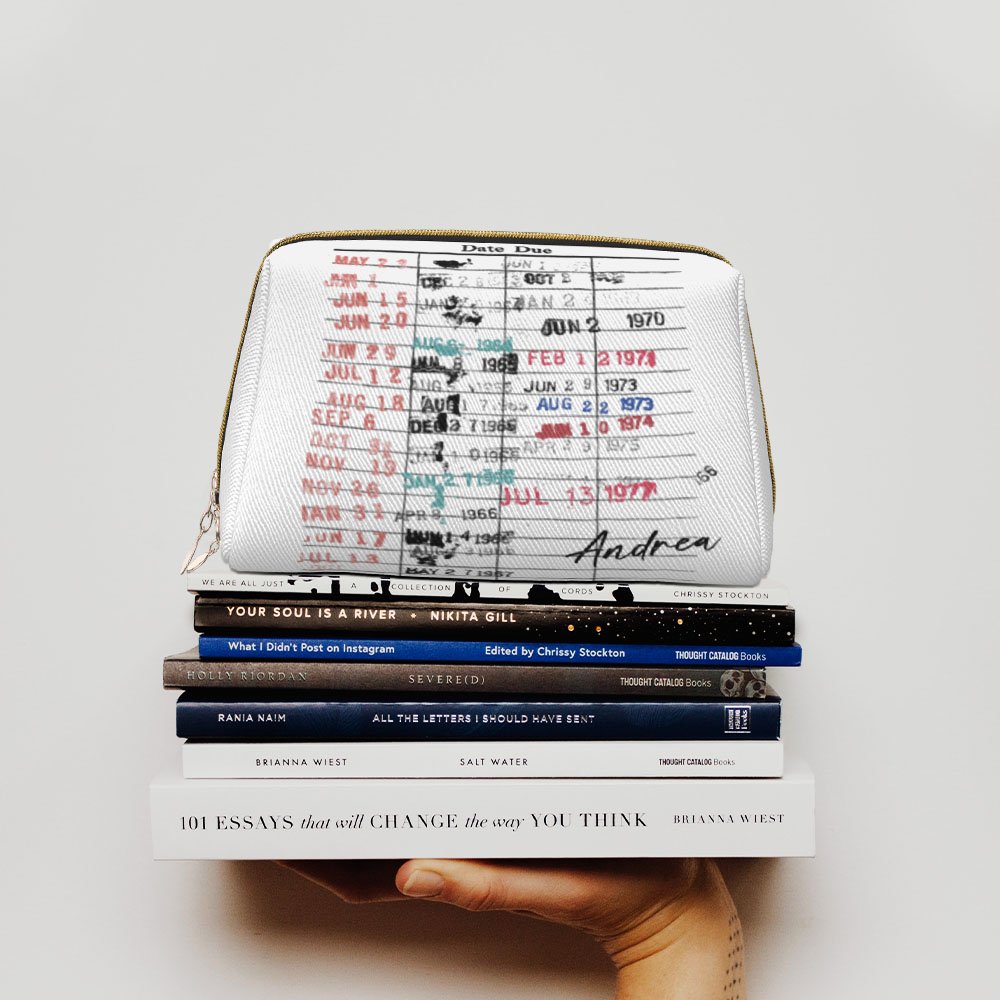 Date Due
MAY 2 2
JUN 1
JAN 1 DEC 2 OCT 2
JUN 15 JAN JAN 2
JUN 20 JUN 2 1970
AUG 6 1964
JUN 29 1965 FEB 1 2 1971
JUL 1 2 AUG JUN 2 9 1973
AUG 18 AUG 1 7 1965 AUG 2 2 1973
SEP 6 DEC 2 7 1966 JUN 1 0 1974
OCT 31 1966 APR 1975
NOV 19 JAN 2 7 1966 66
NOV 26 JUL 13 1977
JAN 31 APR 8 1966
JUN 17 JUN 1 4 1966 Andrea
JUL 13
MAY 2 7 1967
WE ARE ALL JUST A COLLECTION OF CORDS CHRISSY STOCKTON
YOUR SOUL IS A RIVER • NIKITA GILL
What I Didn't Post on Instagram Edited by Chrissy Stockton THOUGHT CATALOG Books
HOLLY RIORDAN SEVERE(D) THOUGHT CATALOG Books
RANIA NAIM ALL THE LETTERS I SHOULD HAVE SENT
BRIANNA WIEST SALT WATER THOUGHT CATALOG Books
101 ESSAYS that will CHANGE the way YOU THINK BRIANNA WIEST